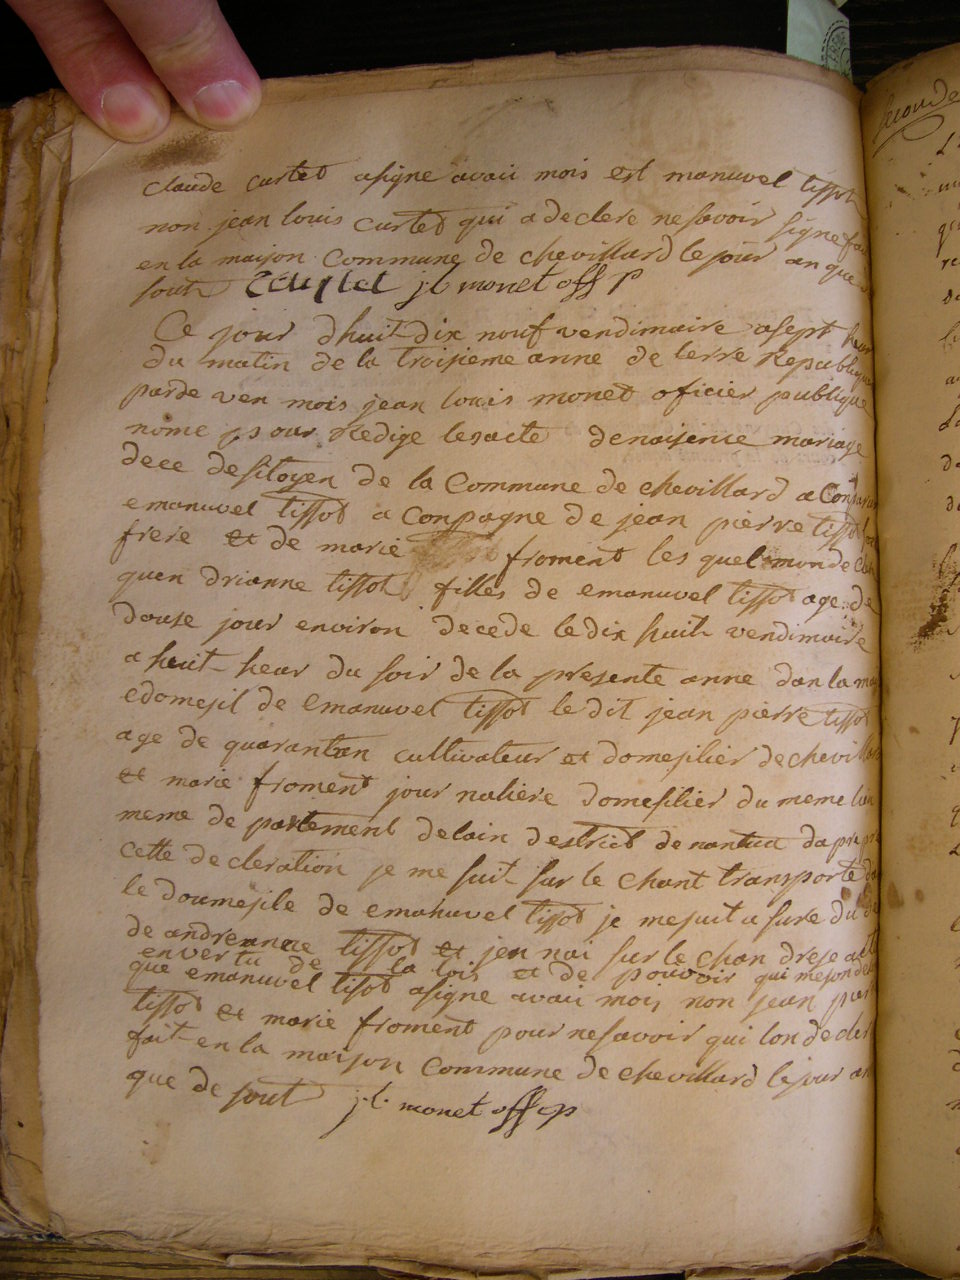 claude curtet asigne avaii mois est manuvel tissot
non jean louis curtet qui a declere ne savoir signe fai
en la maison commune de chevillard le jour an que d
soutr CCurtet j l monet off p
Ce jour dhuit dix nouf vendimaire a sept heur
du matin de la troisieme anne de lerre Republique
parde ven mois jean louis monet oficier publique
nome pour Redige lesacte denaisence mariage
dece desitoyen de la Commune de chevillard a Conparu
emanuvel tissot a conpagne de jean pierre tissot son
frere et de marie froment les quel mon de cla
quen drianne tissot filles de emanuvel tissot age de
douse jour environ decede le dix huit vendimaire
a huit heur du soir de la presente anne dan la mai
edomesil de emanuvel tissot le dit jean pierre tissot
age de quarantan cultivateur et domesilier de chevillard
et marie froment jour naliere domesilier du meme lieu
meme de partement delain destrict de nantua dapre
cette decleration je me suit sur le chant transporte da
le doumesile de emanuvel tissot je me suit a sure du de
de andreanne tissot et jen nai sur le chan drese act
en vertu de la lois et de pouvoir qui meson de
que emanuvel tisot asigne avaii mois non jean pier
tissot et marie froment pour ne savoir qui lon decler
fait en la maison commune de chevillard le jour an
que de sout j. l. monet off p
Seconde